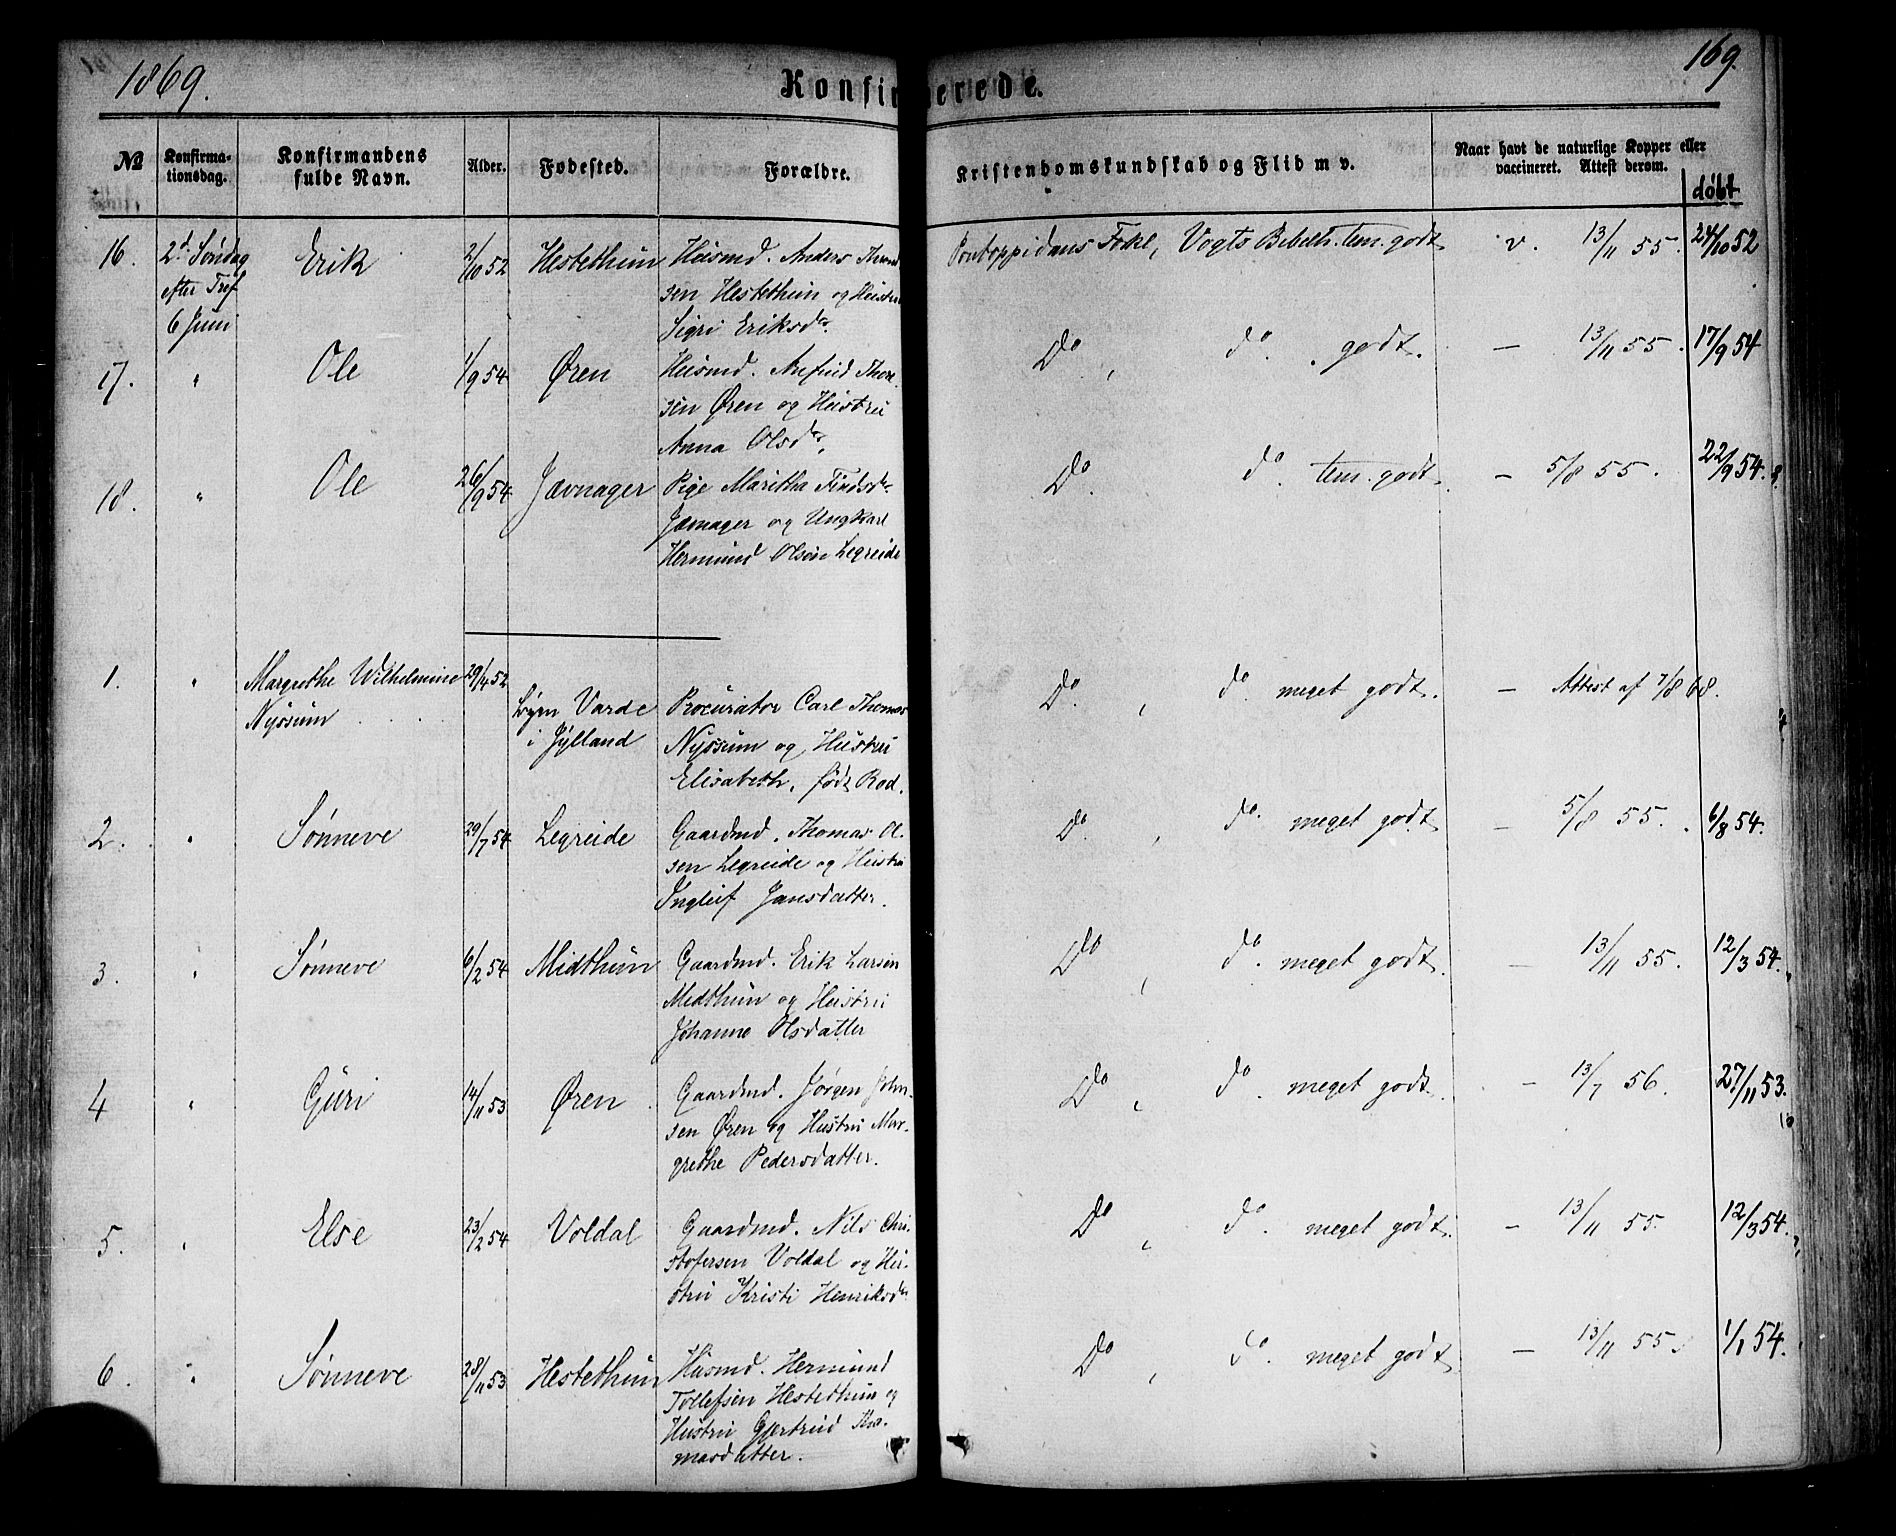 1869.
Konfirmerede.
169.
No
Konfirma-
tionsdag.
Konfirmandens
fulde Navn.
Alder.
Fødested.
Forældre.
Kristendomskundskab og Flid m v.
Naar havt de naturlige Kopper eller
vaccineret. Attest derom.
døbt
16. 2d Søndag Erik 2/10 52 Hestethun Husmd. Anders Thom Pontoppidans Fokl, Vogts Bibelh. tem. godt v. 13/11 55. 24/10 52
efter Tref sen Hestethun og Hustru
6 Juni Sigri Eriksdr.
17. " Ole 1/9 54 Øren Husmd. Anfind Thor Do, do. godt. — 13/11 55. 17/9 54
sen Øren og Hustru
Anna Olsdr.
18. " Ole 26/9 54 Jævnager Pige Maritha Findsdr. Do. do. tem. godt. — 5/8 55. 22/9 54.
Jævnager og Ungkarl
Hermund Olsen Legreide
1. " Margrethe Wilhelmine 29/4 52 Do, do. meget godt. — Attest af 7/8 68.
Nyssum Varde Procurator Carl Thomas
i Jylland Nyssum og Hustru
Elisabeth, født Rod.
2. " Sønneve 29/7 54 Legreide Gaardmd. Thomas Ol- Do, do. meget godt — 5/8 55. 6/8 54.
sen Legreide og Hustru
Ingleif Jansdatter.
3. " Sønneve 6/2 54 Midthun Gaardmd. Erik Larsen Do, do. meget godt. — 13/11 55. 12/3 54.
Midthun og Hustru
Johanne Olsdatter
4 " Guri 14/11 53 Øren Gaardmd. Jørgen John- Do, do. meget godt. — 13/7 56. 27/11 53.
sen Øren og Hustru Mar-
grethe Pedersdatter.
5. " Else 23/2 54 Voldal Gaardmd. Nils Chri- Do, do. meget godt. — 13/11 55. 12/3 54.
stofersen Voldal og Hu-
stru Kristi Henriksdr
6. " Sønneve 28/11 53 Hestethun Husmd. Hermund Do, do. meget godt. — 13/11 55. 1/1 54.
Tollefsen Hestethun og
Hustru Gjertrud Tho-
masdatter.